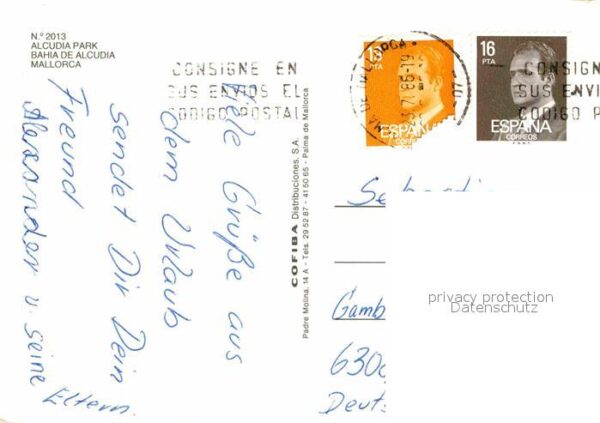 N.º 2013
ALCUDIA PARK
BAHIA DE ALCUDIA
MALLORCA
CONSIGNE EN
SUS ENVIOS EL
CODIGO POSTAL
19
PTA
ESPAÑA
CORREOS
16
PTA
ESPAÑA
CORREOS
CONS
SUS ENVI
CODIGO P
Viele Grüße aus
dem Urlaub
sendet Dir Dein
Freund
Alexander u. seine
Eltern.
COFIBA Distribuciones, S.A.
Padre Molina, 14 A - Tels. 29 52 87 - 41 50 65 - Palma de Mallorca
Gamb
630
Deut
privacy protection
Datenschutz